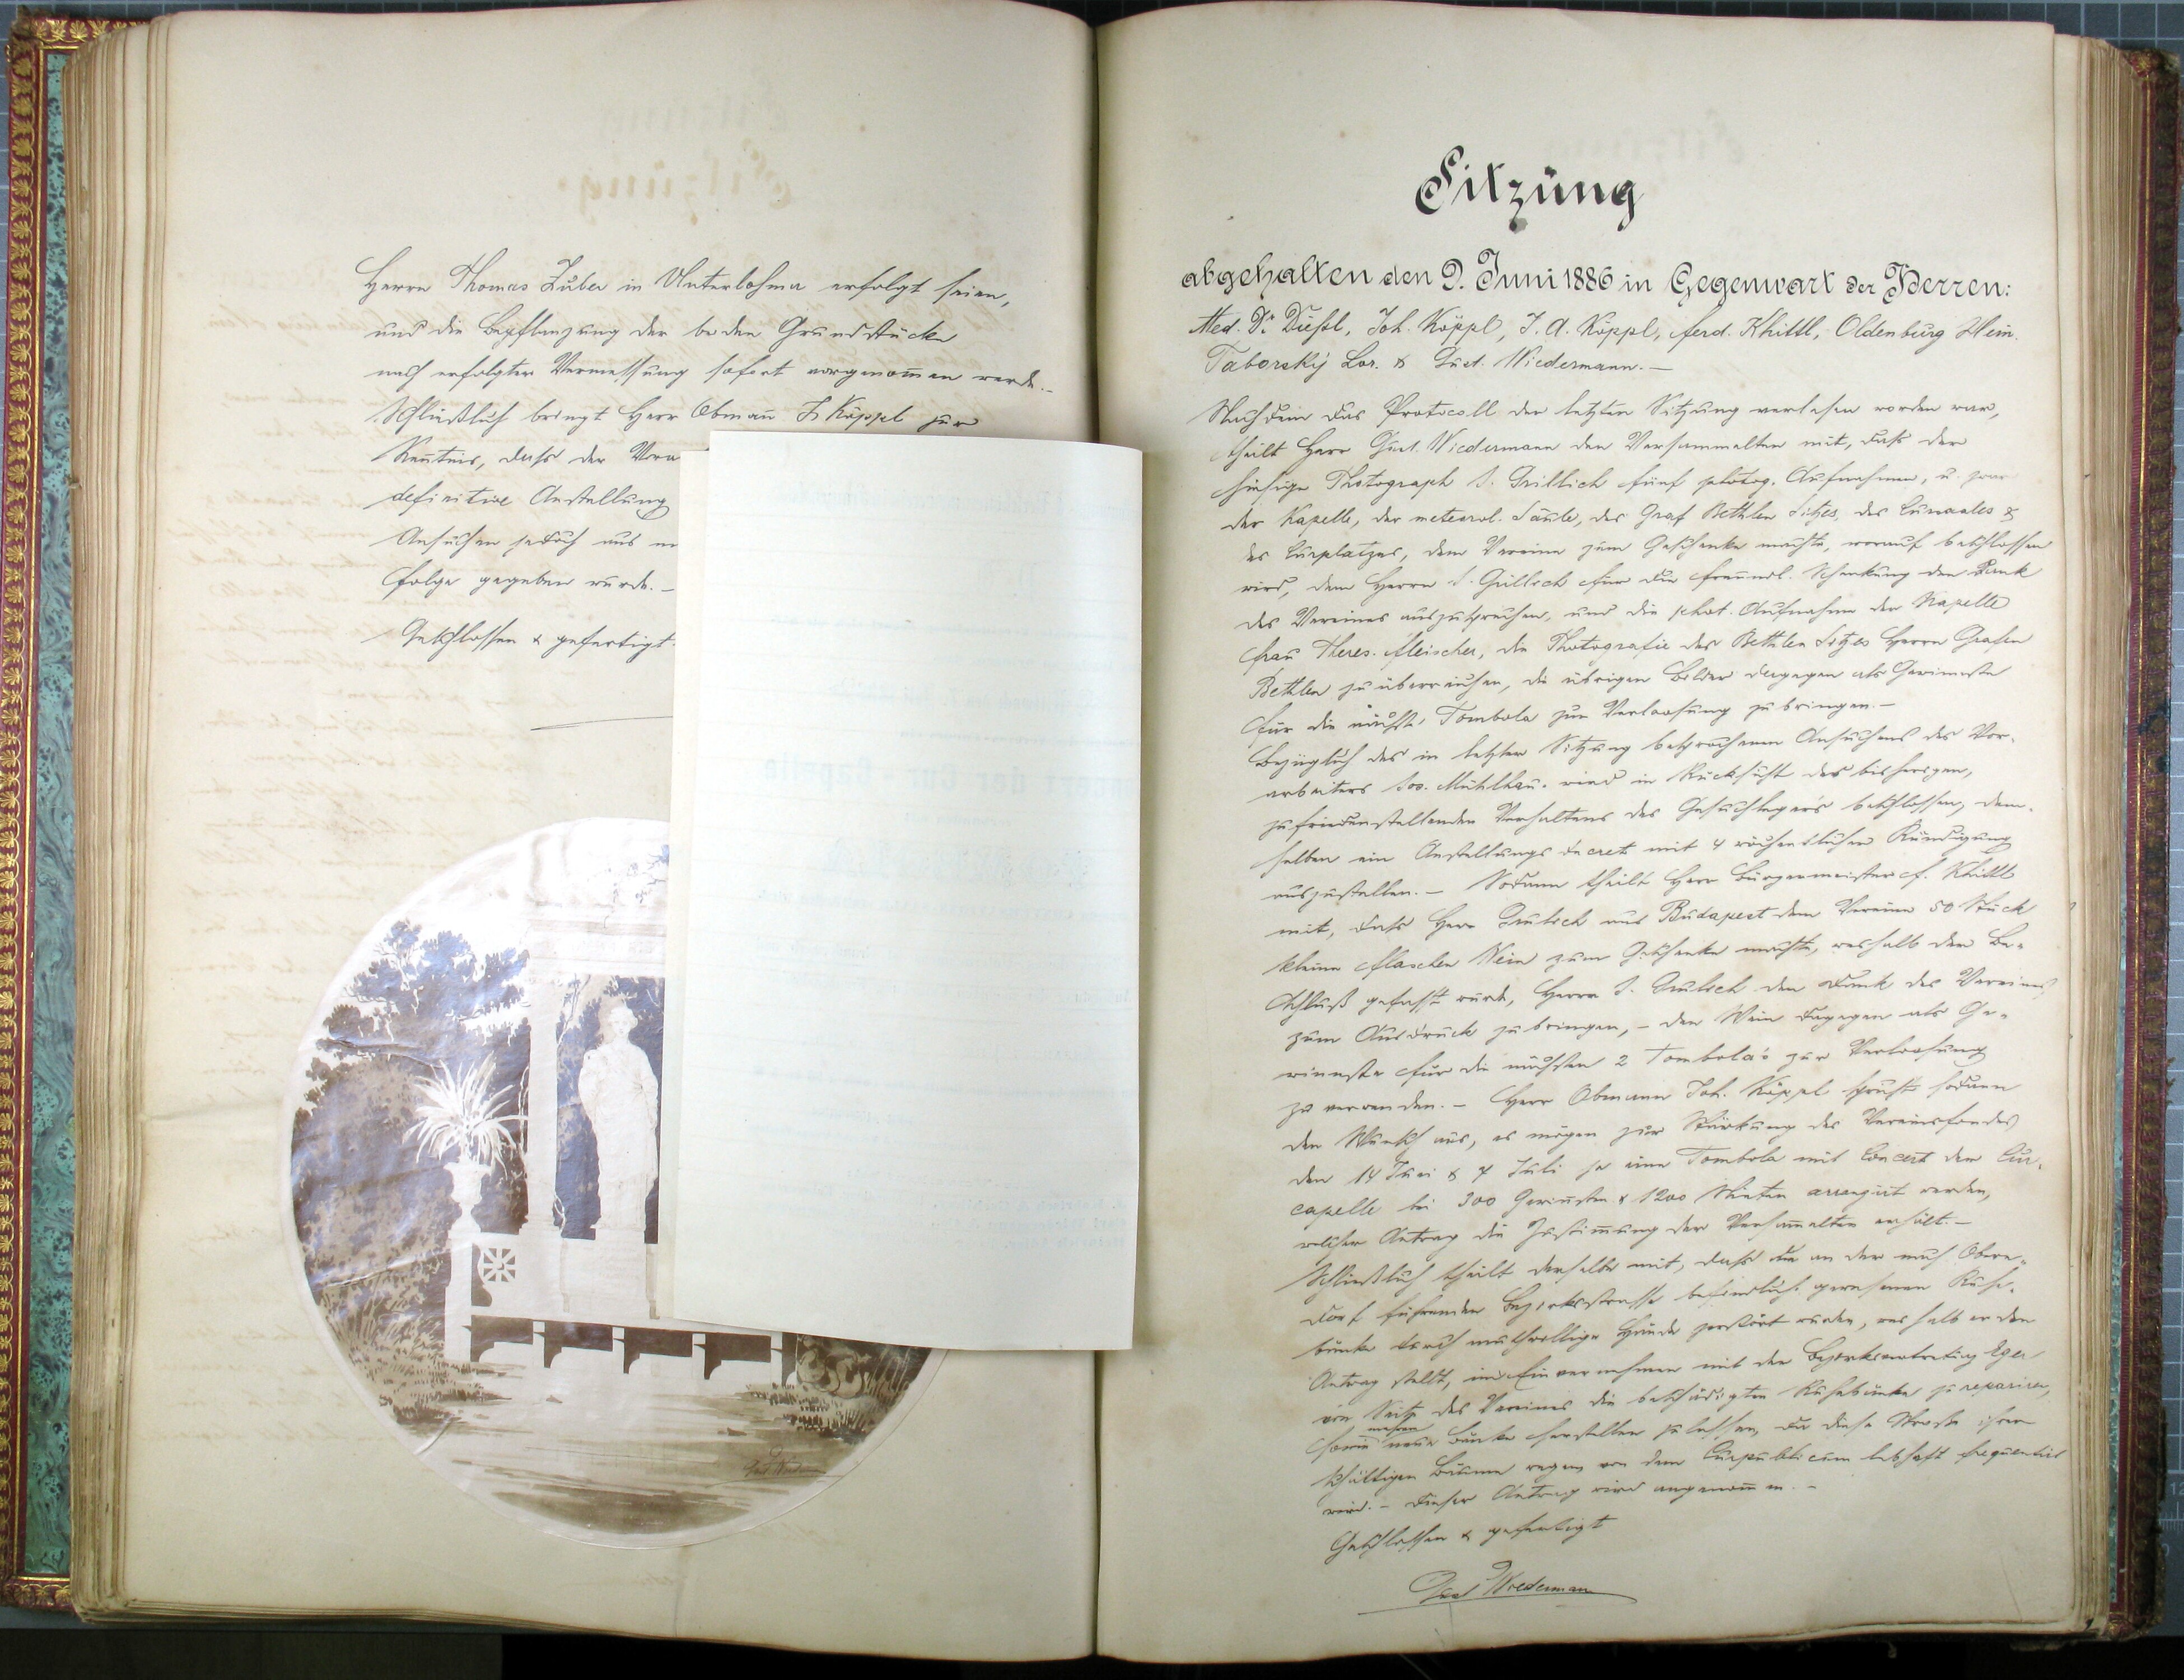 Herrn Thomas Zuber in Unterlohma erfolgt seien,
und die Bepflanzung der beden Grundstücke
nach erfolgter Vermessung sofort vorgenom̅en werde.—
Schließlich bringt Herr Obman̅ J. Köppl zur
Ken̅tnis, dass der Vora
definitive Anstellung
Ansuchen jedoch aus
folge gegeben wurde.—
Geschlossen & gefertigt.
Sitzung
abgehalten den 9. Juni 1886 in Gegenwart der Herren:
Med. Dr Dießl, Joh. Köppl, J. A. Köppl, Ferd. Khittl, Oldenburg Hein.
Taborský Lor. & Gust. Wiedermann.—
Nachdem das Protocoll der letzten Sitzung verlesen worden war,
theilt Herr Gust. Wiedermann den Versammelten mit, dass der
hiesige Photograph J. Grillich fünf photog. Aufnahmen, u. zwar
der Kapelle, der meteorol. Säule, des Graf Bethlen Sitzes, des Cursaales &
des Curplatzes, dem Vereine zum Geschenke machte, worauf beschlossen
wird, dem Herrn J. Grillich für die freundl. Schenkung den Dank
des Vereines auszusprechen, und die phot. Aufnahme der Kapelle
Frau Theres. Fleischer, die Photografie des Bethlen Sitzes Herrn Grafen
Bethlen zu überreichen, die übrigen Bilder dagegen als Gewinnste
für die nächste Tombola zur Verloosung zu bringen.—
Bezüglich des in letzter Sitzung besprochenen Ansuchens des Vor-
arbeiters Jos. Mühlhan. wird in Rücksicht des bisherigen,
zufriedenstellenden Verhaltens des Gesuchlegers beschlossen, dem-
selben ein Anstellungs decret mit 4 wöchentlicher Kündigung
auszustellen.— Sodann theilt Herr Bürgermeister F. Khittl
mit, dass Herr aus Budapest dem Vereine 50 Stück
kleine Flaschen Wein zum Geschenke machte, weshalb der Be-
schluß gefasst wurde, Herrn J. den Dank des Vereines
zum Ausdruck zu bringen,— den Wein dagegen als Ge-
winnste für die nächsten 2 Tombola's zur Verloosung
zu verwenden.— Herr Obmann Joh. Köppl spricht sodann
den Wunsch aus, es mögen zur Stärkung des Vereinsfondes
den 14 Juni & 4 Juli je eine Tombola mit Concert der Cur-
capelle bei 300 Gewin̅sten & 1200 Nieten arrangirt werden,
welcher Antrag die Zustim̅ung der Versam̅elten erhält.—
Schließlich theilt derselbe mit, dass die an der nach Obern-
dorf führenden Bezirksstrasse befindlich gewesenen Ruhe-
bänke durch muthwillige Hände zerstört wurden, weshalb er den
Antrag stellt, im Einvernehmen mit der Bezirksvertretung Eger
von Seite des Vereines die beschädigten Ruhebänke zu repariren,
sowie mehre neue Bänke herstellen zu lassen, da diese Strasse ihrer
schattigen Bäume wegen von dem Curpublicum lebhaft frequentirt
wird.— Dieser Antrag wird angenom̅en.—
Geschlossen & gefertigt
Gust Wiedermann